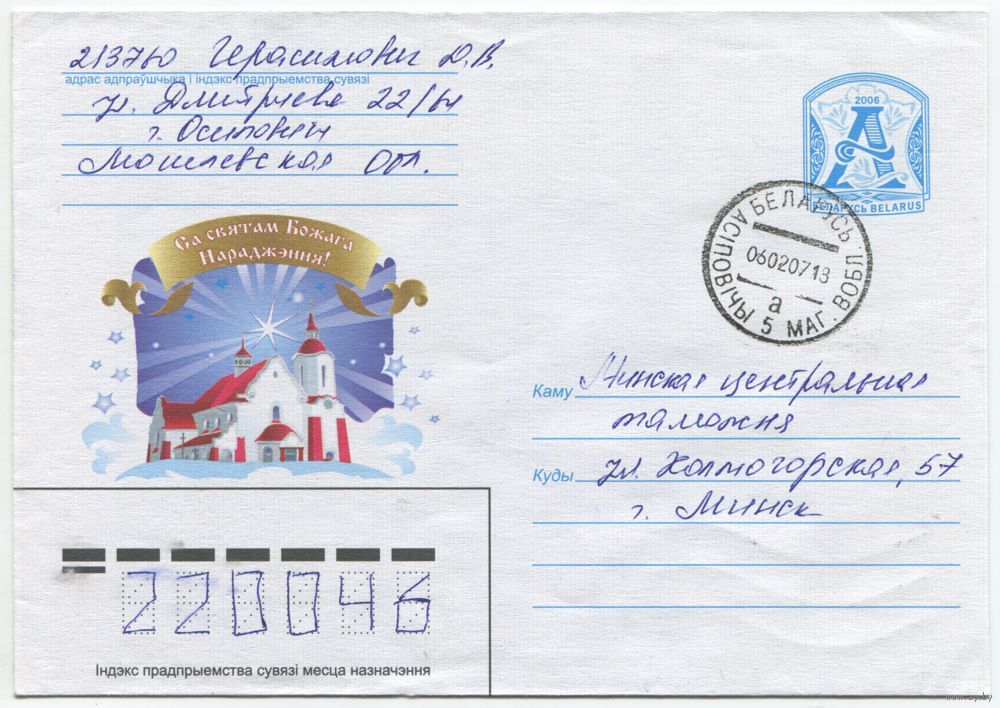 213760 Герасимович Д.В.
адрас адпраўшчыка і індэкс прадпрыемства сувязі
ул. Дмитриева 22/61
г. Осиповичи
Могилевская обл.
2006
А
БЕЛАРУСЬ BELARUS
БЕЛАРУСЬ
АСІПОВІЧЫ 5 МАГ. ВОБЛ.
06020718
а
Са святам Божага
Нараджэння!
Каму Минская центральная
таможня
Куды ул. Холмогорская, 57
г. Минск
220046
Індэкс прадпрыемства сувязі месца назначэння